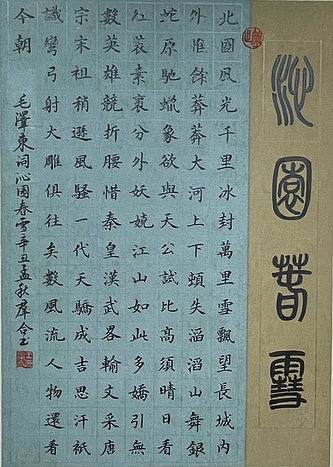 沁園春雪
北國風光千里冰封萬里雪飄望長城內
外惟餘莽莽大河上下頓失滔滔山舞銀
蛇原馳蠟象欲與天公試比高須晴日看
紅裝素裹分外妖嬈江山如此多嬌引無
數英雄競折腰惜秦皇漢武畧輸文采唐
宗宋祖稍遜風騷一代天驕成吉思汗祇
識彎弓射大雕俱往矣數風流人物還看
今朝
毛澤東詞沁園春雪辛丑孟秋